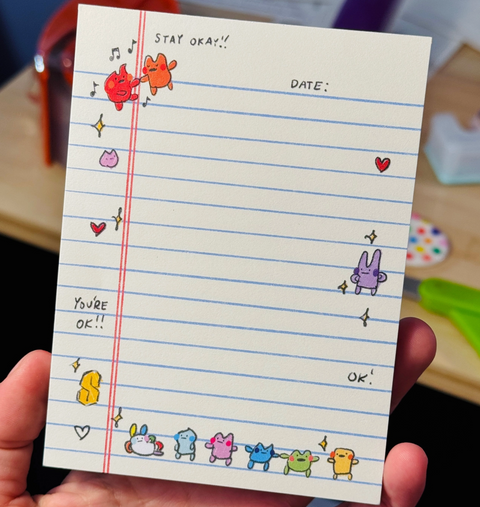 STAY OKAY!!
DATE:
YOU'RE
OK!!
OK!
S